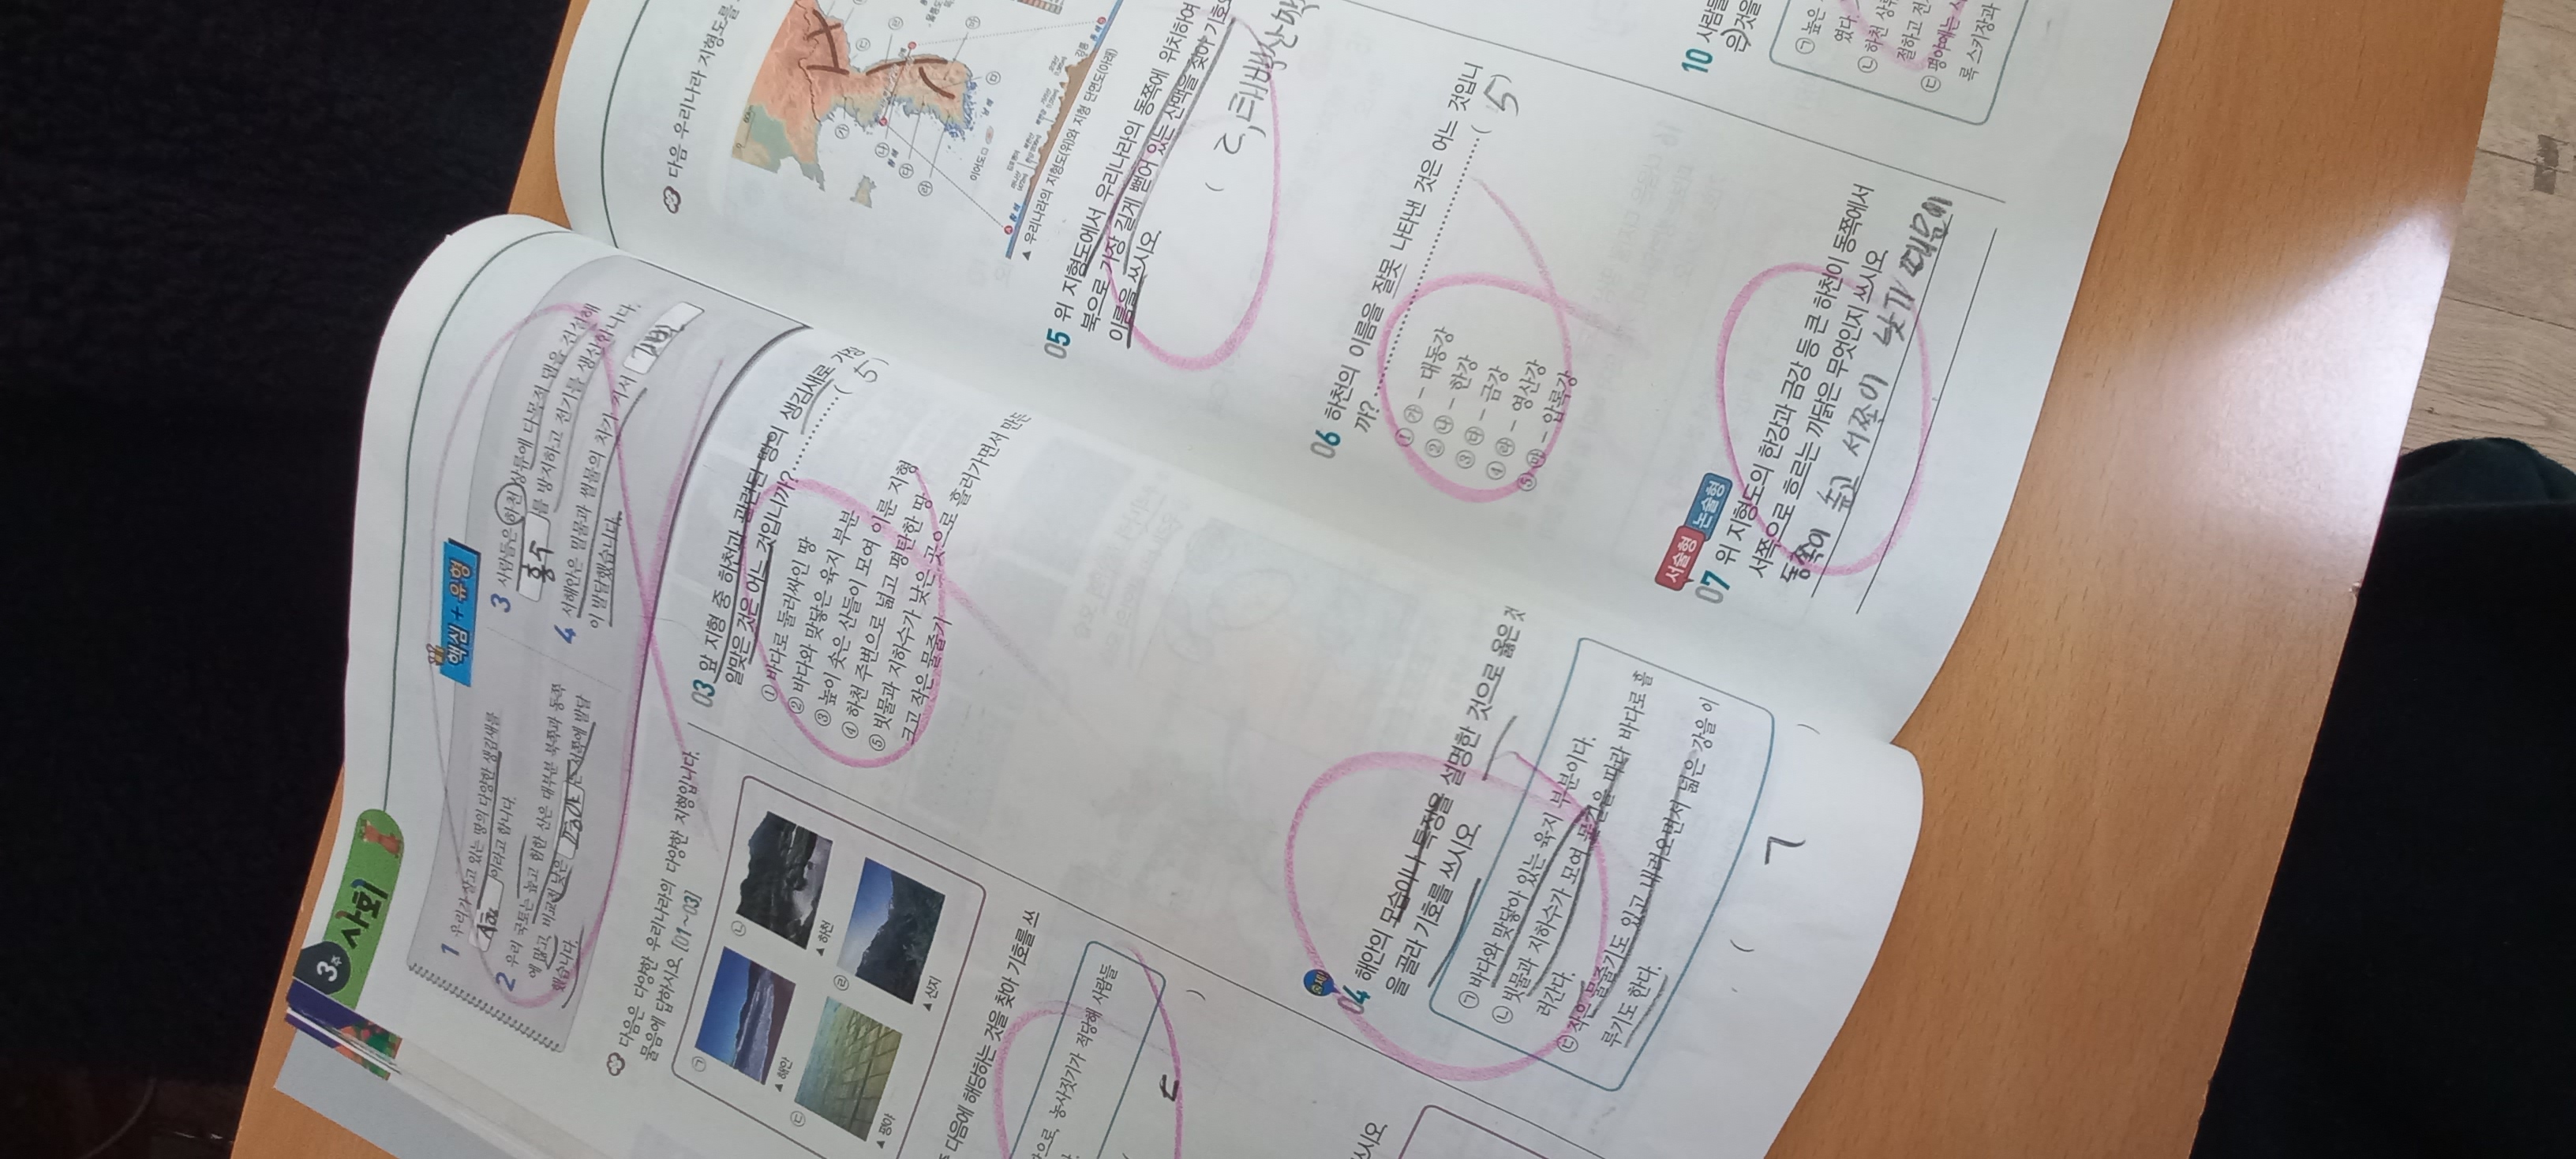 3주 사회
핵심 + 유형
1 우리가 살고 있는 땅의 다양한 생김새를
지형 이라고 합니다.
2 우리 국토는 높고 험한 산은 대부분 북쪽과 동쪽
에 많고, 비교적 낮은 평야 는 서쪽에 발달
했습니다.
3 사람들은 하천 상류에 다목적 댐을 건설해
홍수 를 방지하고 전기를 생산합니다.
4 서해안은 밀물과 썰물의 차가 커서 갯벌
이 발달했습니다.
다음은 다양한 우리나라의 다양한 지형입니다.
물음에 답하시오. [01~03]
㉠
▲ 해안
㉡
▲ 하천
㉢
▲ 평야
㉣
▲ 산지
다음에 해당하는 것을 찾아 기호를 쓰
으로, 농사짓기가 적당해 사람들
ㄷ
쓰시오
03 앞 지형 중 하천과 관련된 땅의 생김새로 가장
알맞은 것은 어느 것입니까? ( 5 )
① 바다로 둘러싸인 땅
② 바다와 맞닿은 육지 부분
③ 높이 솟은 산들이 모여 이룬 지형
④ 하천 주변으로 넓고 평탄한 땅
⑤ 빗물과 지하수가 낮은 곳으로 흘러가면서 만든
크고 작은 물줄기
04 해안의 모습이나 특징을 설명한 것으로 옳은 것
을 골라 기호를 쓰시오.
㉠ 바다와 맞닿아 있는 육지 부분이다.
㉡ 빗물과 지하수가 모여 물길을 따라 바다로 흘
러간다.
㉢ 작은 물줄기도 있고 내려오면서 넓은 강을 이
루기도 한다.
( ㄱ )
다음 우리나라 지형도를
이어도
▲ 우리나라의 지형도(위)와 지형 단면도(아래)
05 위 지형도에서 우리나라의 동쪽에 위치하여
북으로 가장 길게 뻗어 있는 산맥을 찾아 기호와
이름을 쓰시오.
( ㄹ, 태백산맥
06 하천의 이름을 잘못 나타낸 것은 어느 것입니
까? ( 5 )
① ㉮ - 대동강
② ㉯ - 한강
③ ㉰ - 금강
④ ㉱ - 영산강
⑤ ㉲ - 압록강
서술형 논술형
07 위 지형도의 한강과 금강 등 큰 하천이 동쪽에서
서쪽으로 흐르는 까닭은 무엇인지 쓰시오.
동쪽이 높고 서쪽이 낮기 때문이
10 사람들
은 것을
㉠ 높은
였다.
㉡ 하천 상류
절하고 전
㉢ 평야에는
록 스키장과